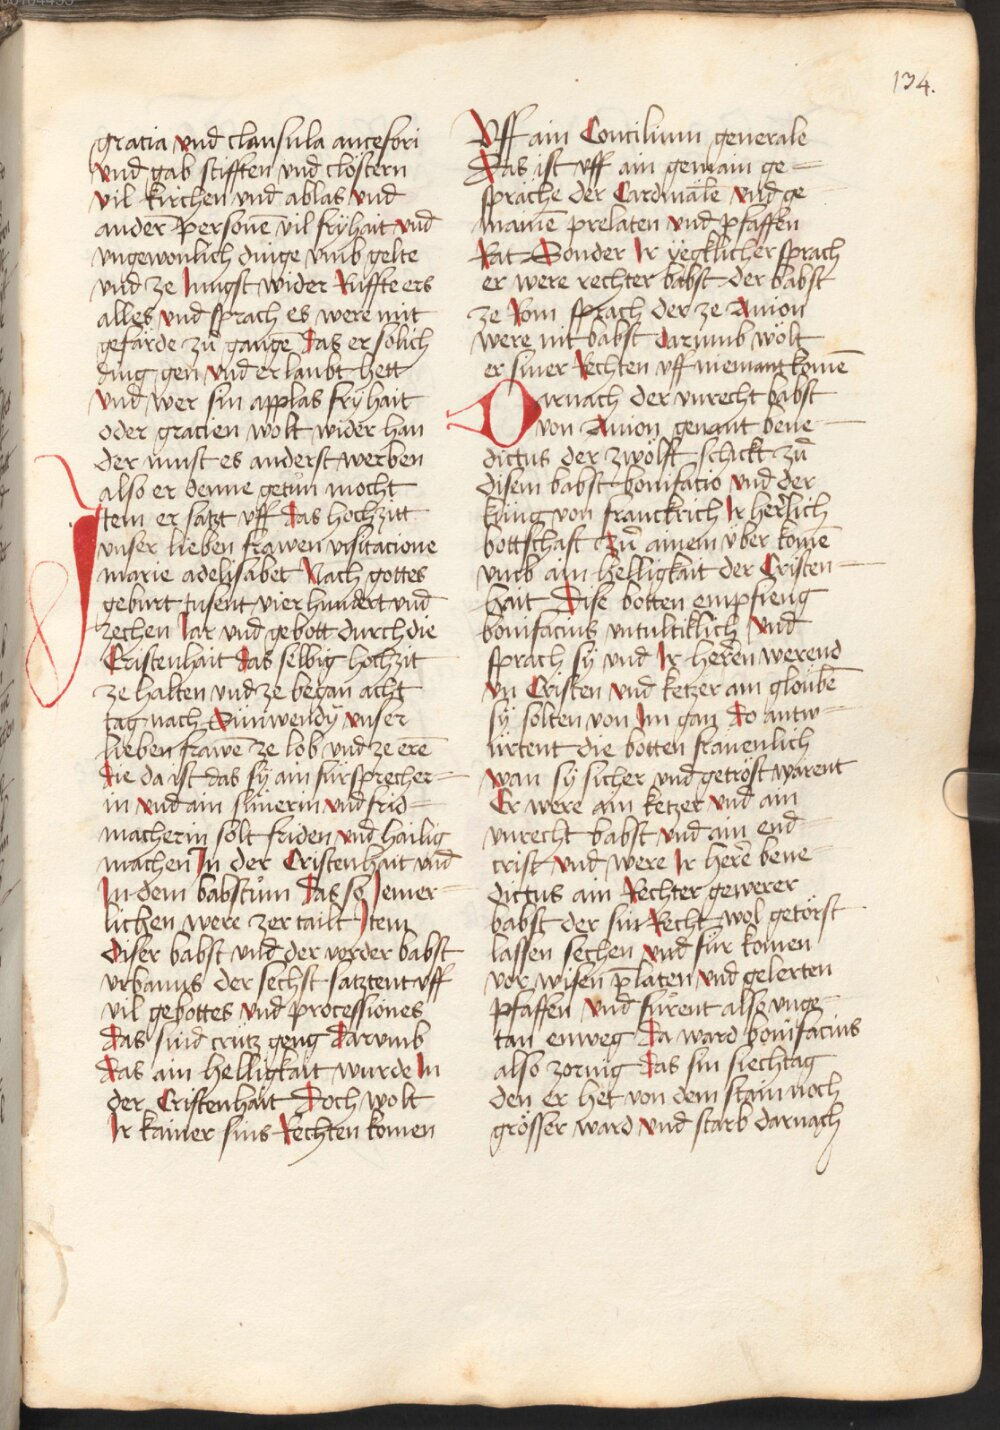 134.
gratia vnd clausula anteferi
vnd gab stifften vnd clöstern
vil kirchen vnd ablas vnd
andeꝛ personē vil fryhait vnd
vngewonlich dinge vmb gelte
vnd ze Jungst wider Rüffte ers
alles vnd sprach es were mit
gefärde zů gangē Das er solich
ding gen vnd erlaubt hett
vnd wer sin applas fryhait
oder gracien wolt wider han
der must es anderst werben
also er denne getůn mocht
Jtem er satzt vff Das hochzitt
vnser lieben frawen visitacione
marie adelisabet Nach gottes
geburt tusent vierhundert vnd
zechen Jar vnd gebott durch die
Cristenhait Das selbig hochzit
ze halten vnd ze began acht
tag nach Sunwendÿ vnser
lieben frawē ze lob vnd ze erē
Die da ist das sÿ ain fürsprecher=
in vnd ain slinerin vnd frid=
macherin solt friden vnd hailig
machen Jn der Cristenhait vnd
Jn dem babstům Das so Jemer=
lichen were zertailt Jtem
Diser babst vnd der vorder babst
vrbanus der sechst satztent vff
vil gebottes vnd processiones
Das sind crütz geng Darumb
Das ain helligkait wurde Jn
der Cristenhait Doch wolt
Jr kainer sins Rechten komen
Vff ain Concilium generale
Das ist vff ain gemain ge=
spräche der Cardinälē vnd ge
mainē prelaten vnd pfaffen
Rat Sonder Jr yegklicher sprach
er were rechter babst der babst
ze Rom sprach der ze Auion
were nit babst Darumb wölt
er siner Rechten vff niemant komē
Darnach der vnrecht babst
von Auion genant bene=
dictus der zwölft schickt zů
disem babst bonifatio vnd der
küng von franckrich Jr herlich
bottschaft Zů ainem über komē
vmb ain helligkait der Cristen=
hait Dise botten empfieng
bonifacius vntultiklich vnd
sprach sÿ vnd Jr heren werend
vn Cristen vnd ketzer am gloubē
sÿ solten von Jm gan Do antw=
ürtent die botten fräuenlich
wan sÿ sicher vnd getröst warent
Er were ain ketzer vnd ain
vnrecht babst vnd ain end=
crist vnd were Jr herē bene=
dictus ain Rechter gewerer
babst der sin Recht wol getörst
lassen sechen vnd für komen
vor wisen p̄laten vnd gelerten
pfaffen vnd fůrent also vnge=
tan enweg Da ward bonifacius
also zornig Das sin siechtag
den er het von dem stain noch
grösser ward vnd starb darnach